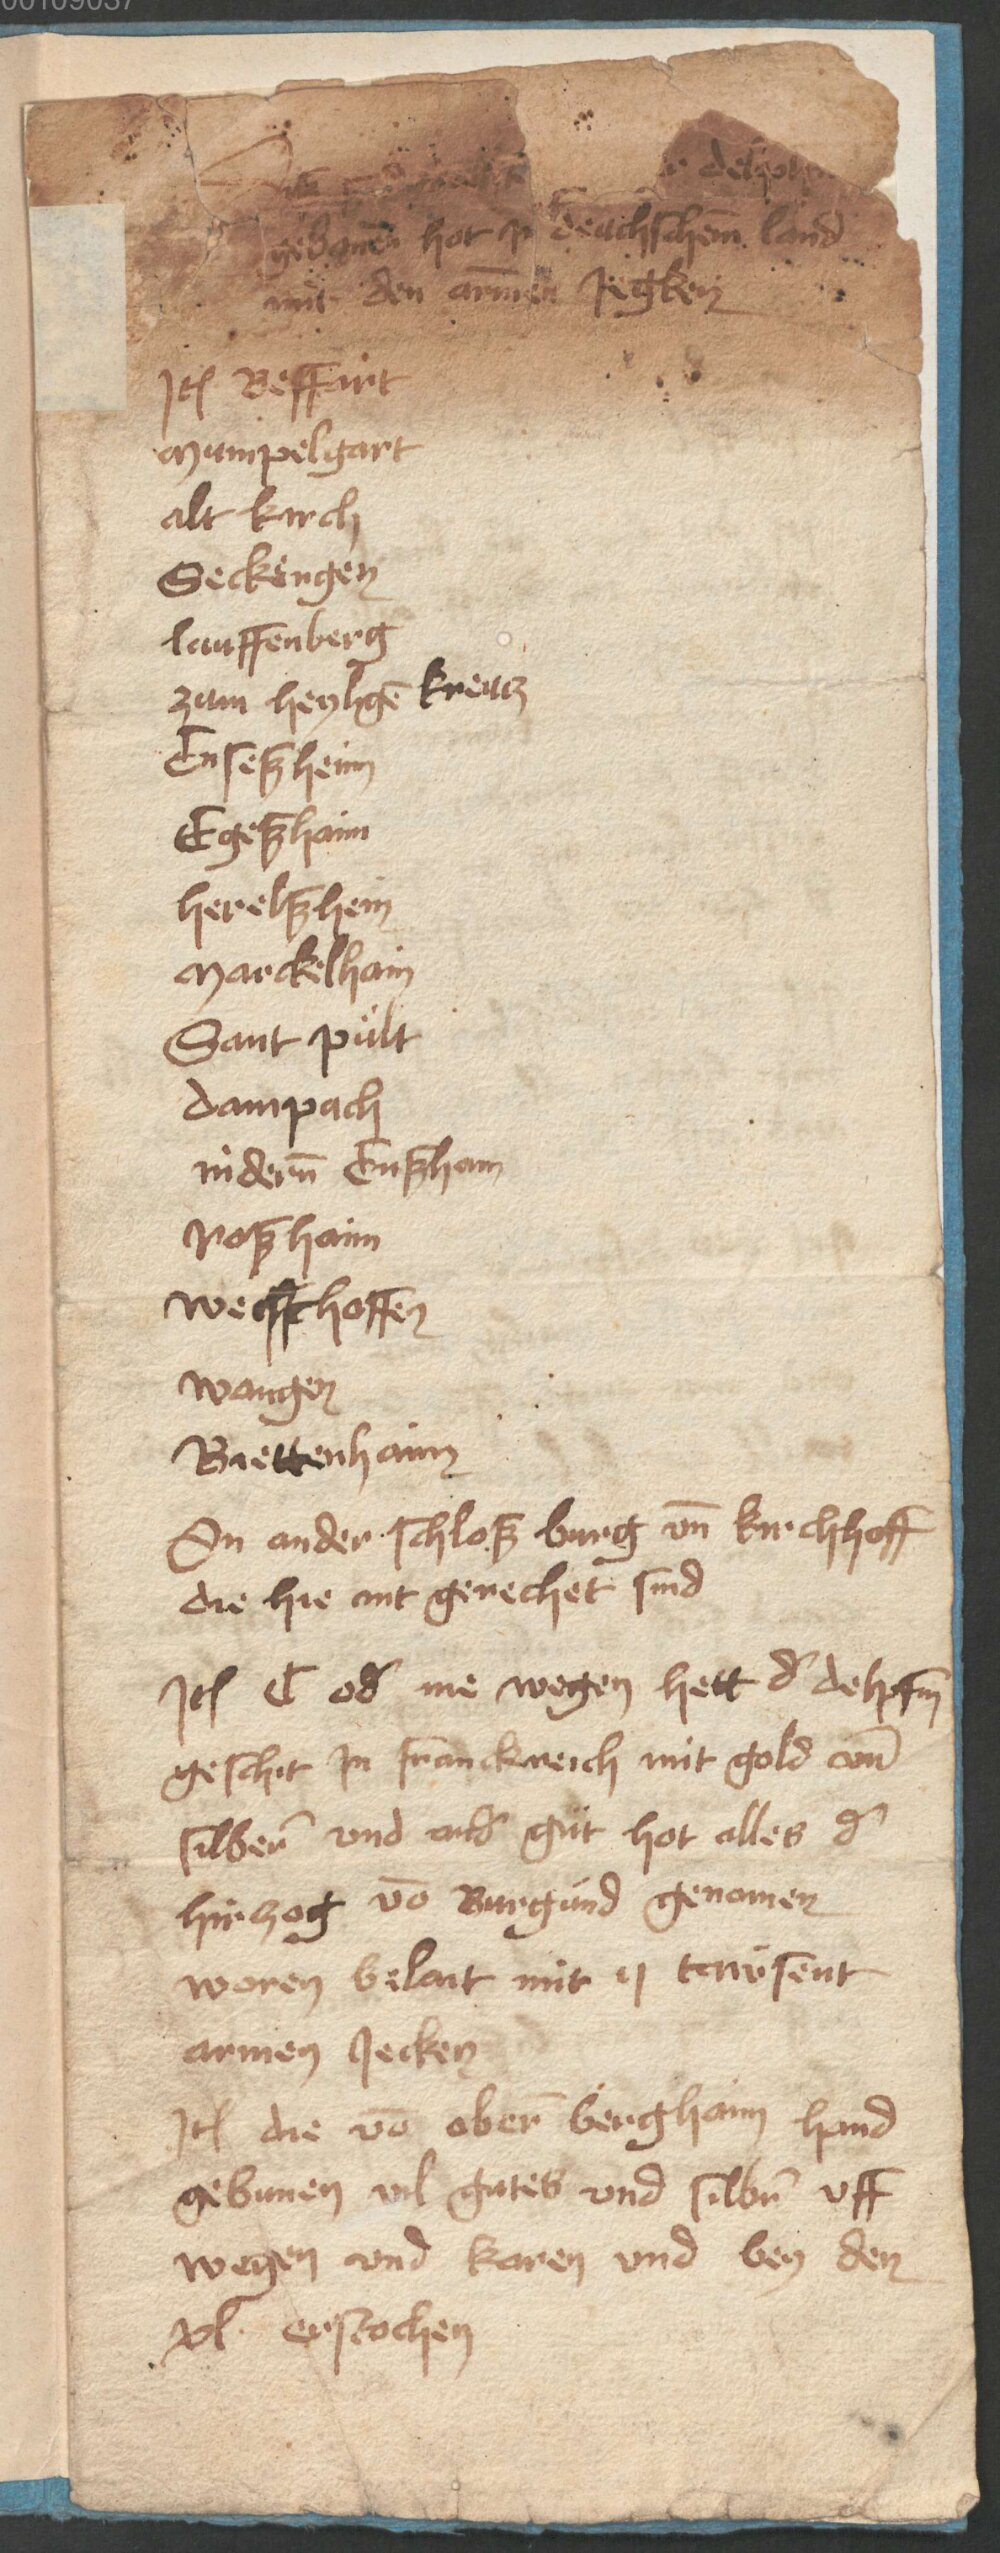 00109037
delpfin
gebunen hot in deuchschem land
mit den armen Jegken
Itl Beffart
Mumpelgart
alt kirch
Seckingen
lauffenberg
zum heyligē kreutz
Enseßheim
Egeßhaim
herelßheim
Marckelhaim
Sant pült
dampach
nidernn Enßham
Roßhaim
westhoffen
wangen
Biettenhaim
On ander schloß burg vn̄ kirchhoff
die hie nit gerechet sind
Itl C od' me wegen hett d' delpfin
geschit in franckreich mit gold vnd
silber vnd and' güt hot alles d'
hirtzog vō Burgünd genomen
woren belait mit ij taüsent
armen Jecken
Itl die vō ober berghaim hand
gebunen vil gutes vnd silber vff
wegen vnd karen vnd bey den
xl erstochen